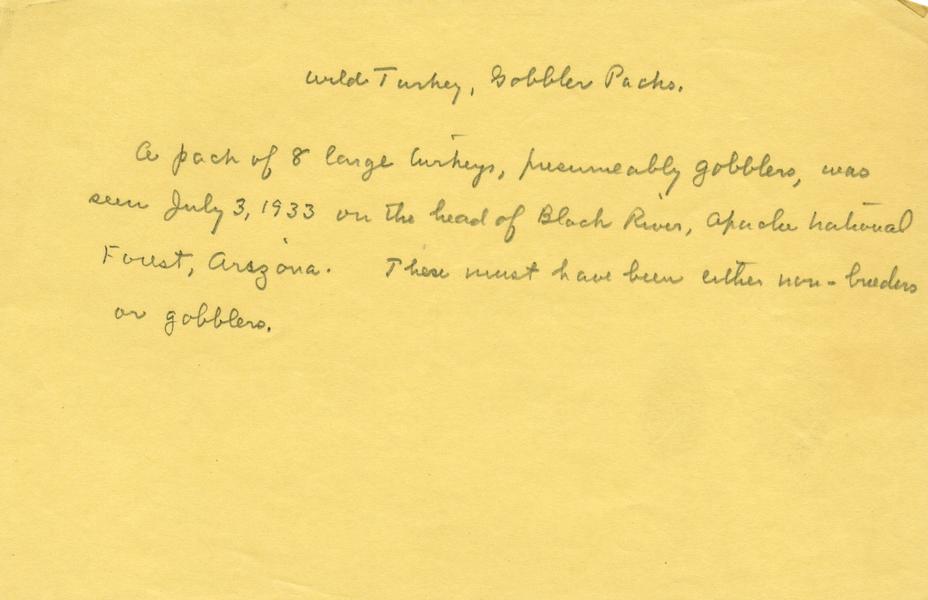 Wild Turkey, Gobbler Packs.
A pack of 8 large turkeys, presumeably gobblers, was
seen July 3, 1933 on the head of Black River, Apache National
Forest, Arizona. These must have been either non-breeders
or gobblers.